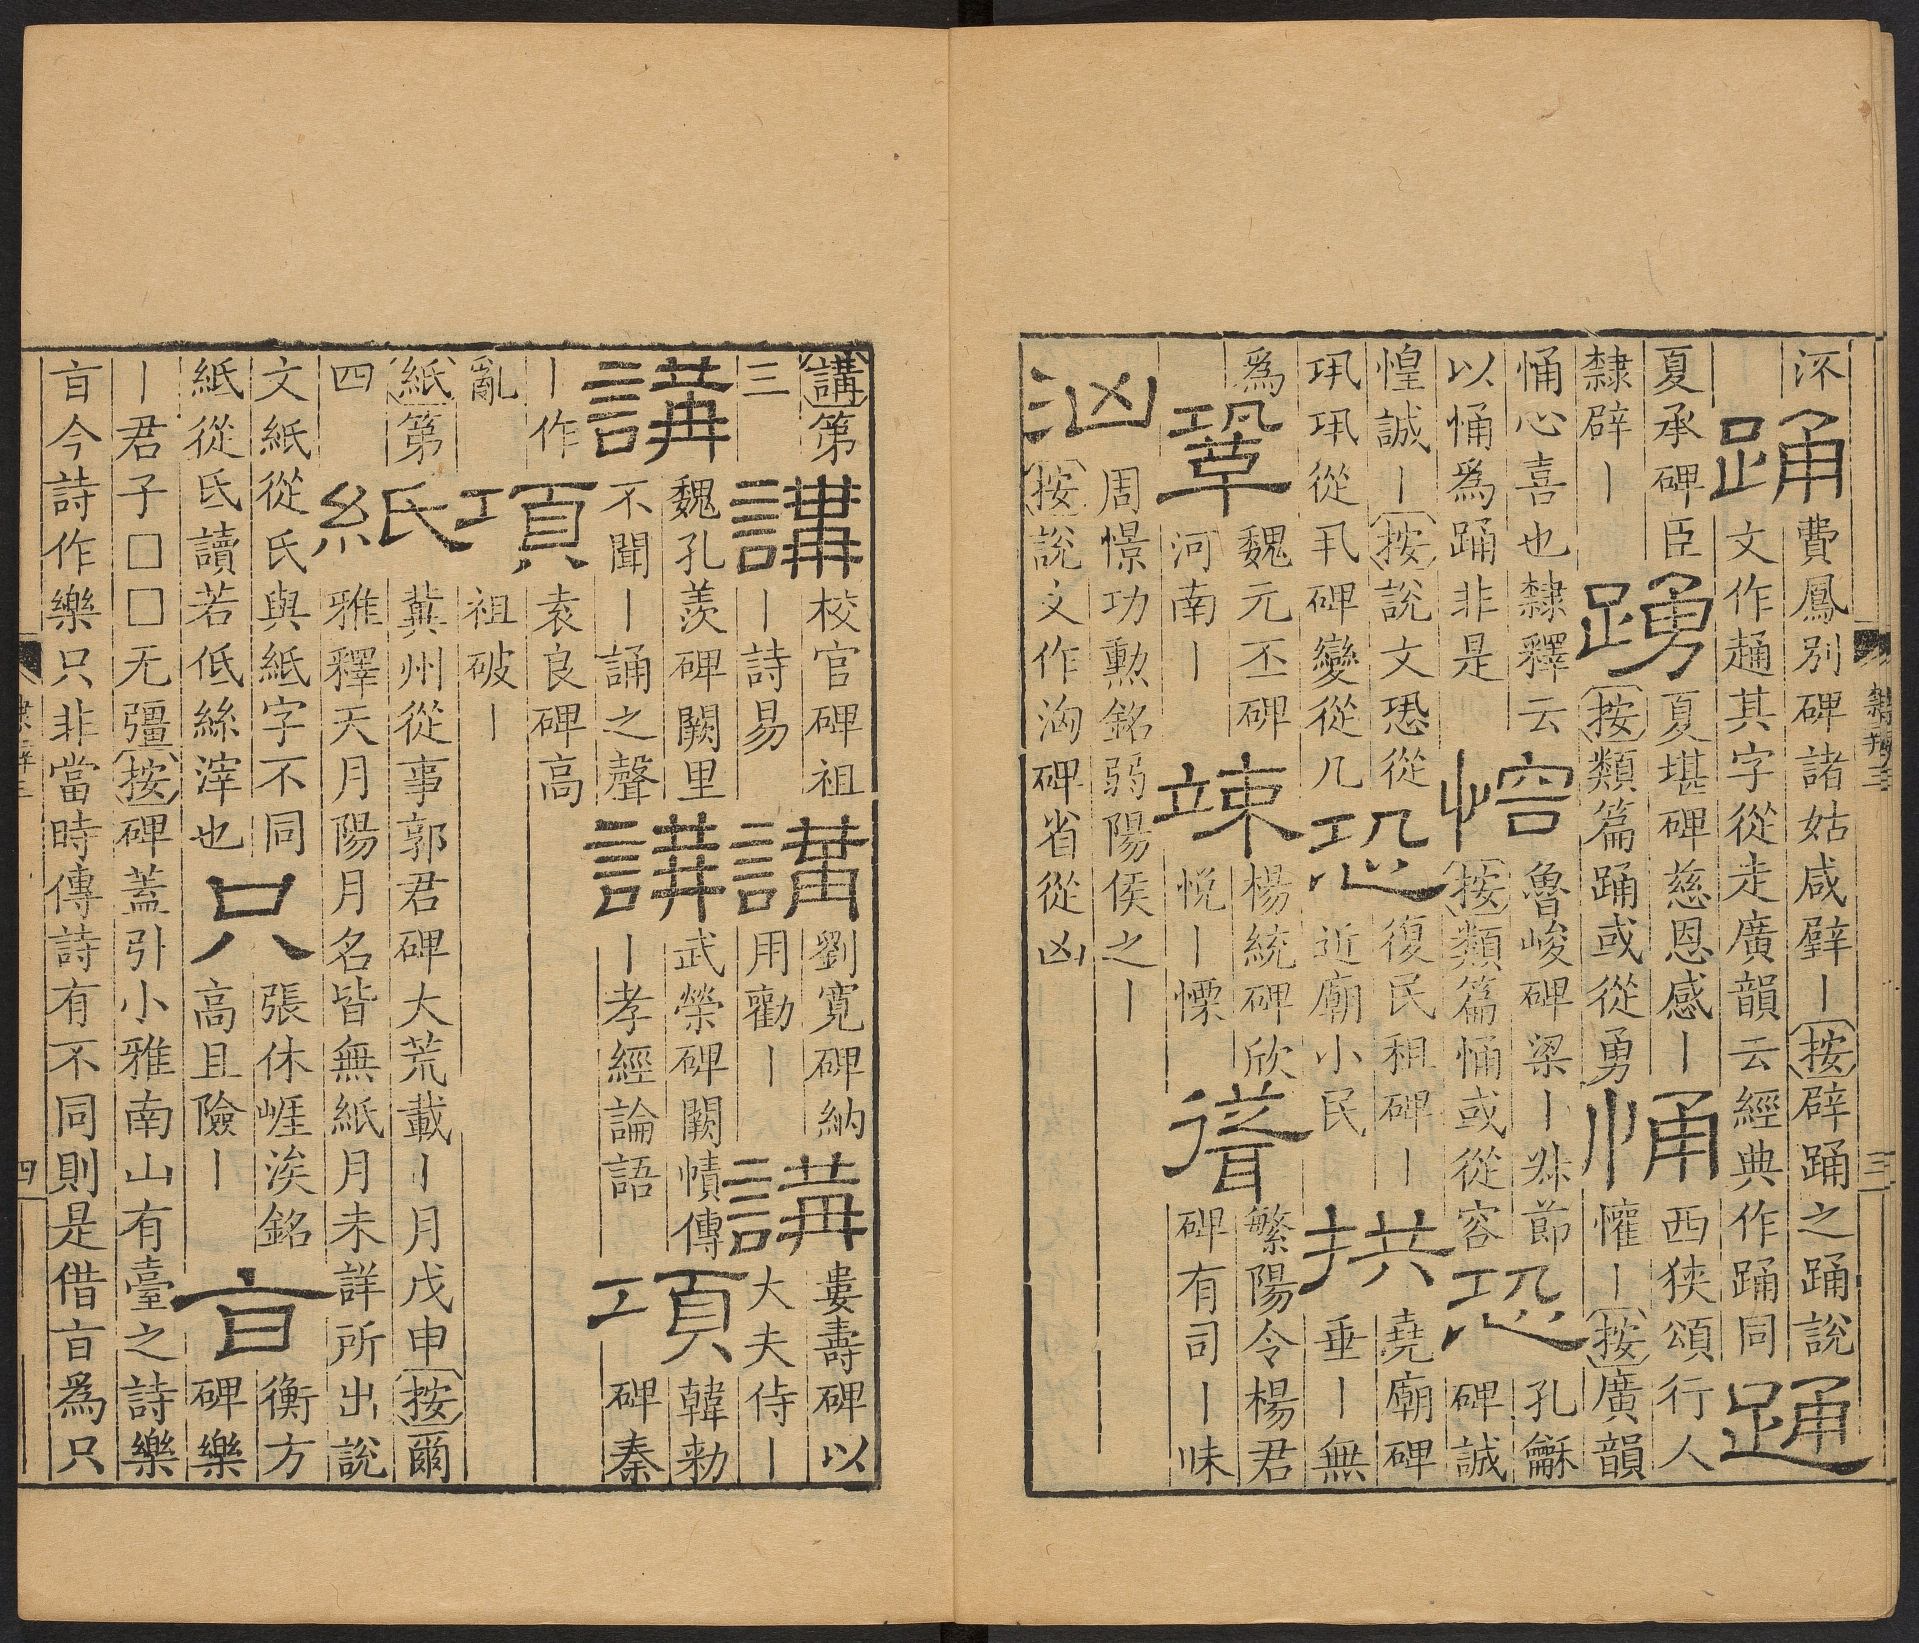 踊
費鳳別碑諸姑咸擗丨按辟踊之踊說
文作䞻其字從走廣韻云經典作踊同
踊
夏承碑臣
隸辟丨
踴
夏堪碑慈恩感丨
按類篇踊或從勇
悀
西狹頌行人
懽丨按廣韻
悀心喜也隸釋云
以悀爲踊非是
愹
魯峻碑梁丨 節
按類篇悀或從容
恐
孔龢
碑誠
惶誠丨按說文恐從
巩巩從丮碑變從几
恐
復民租碑丨
近廟小民
拱
堯廟碑
垂丨無
爲
鞏
魏元丕碑
河南丨
竦
楊統碑欣
悅丨慄
聳
繁陽令楊君
碑有司丨昧
汹
周憬功勳銘弱陽侯之丨
按說文作洶碑省從凶
隸辨三
三
講第
三
講
校官碑祖
丨詩易
講
劉寬碑納
用勸丨
講
婁壽碑以
大夫侍丨
講
魏孔羨碑闕里
不聞丨誦之聲
講
武榮碑闕幘傳
丨孝經論語
項
韓勑
碑秦
丨作
亂
項
袁良碑高
祖破丨
紙第
四
紙
冀州從事郭君碑大荒載丨月戊申按爾
雅釋天月陽月名皆無紙月未詳所出說
文紙從氏與紙字不同
紙從氐讀若低絲滓也
只
張休崕涘銘
高且險丨
旨
衡方
碑樂
丨君子□□无彊按碑蓋引小雅南山有臺之詩樂
旨今詩作樂只非當時傳詩有不同則是借旨爲只
四